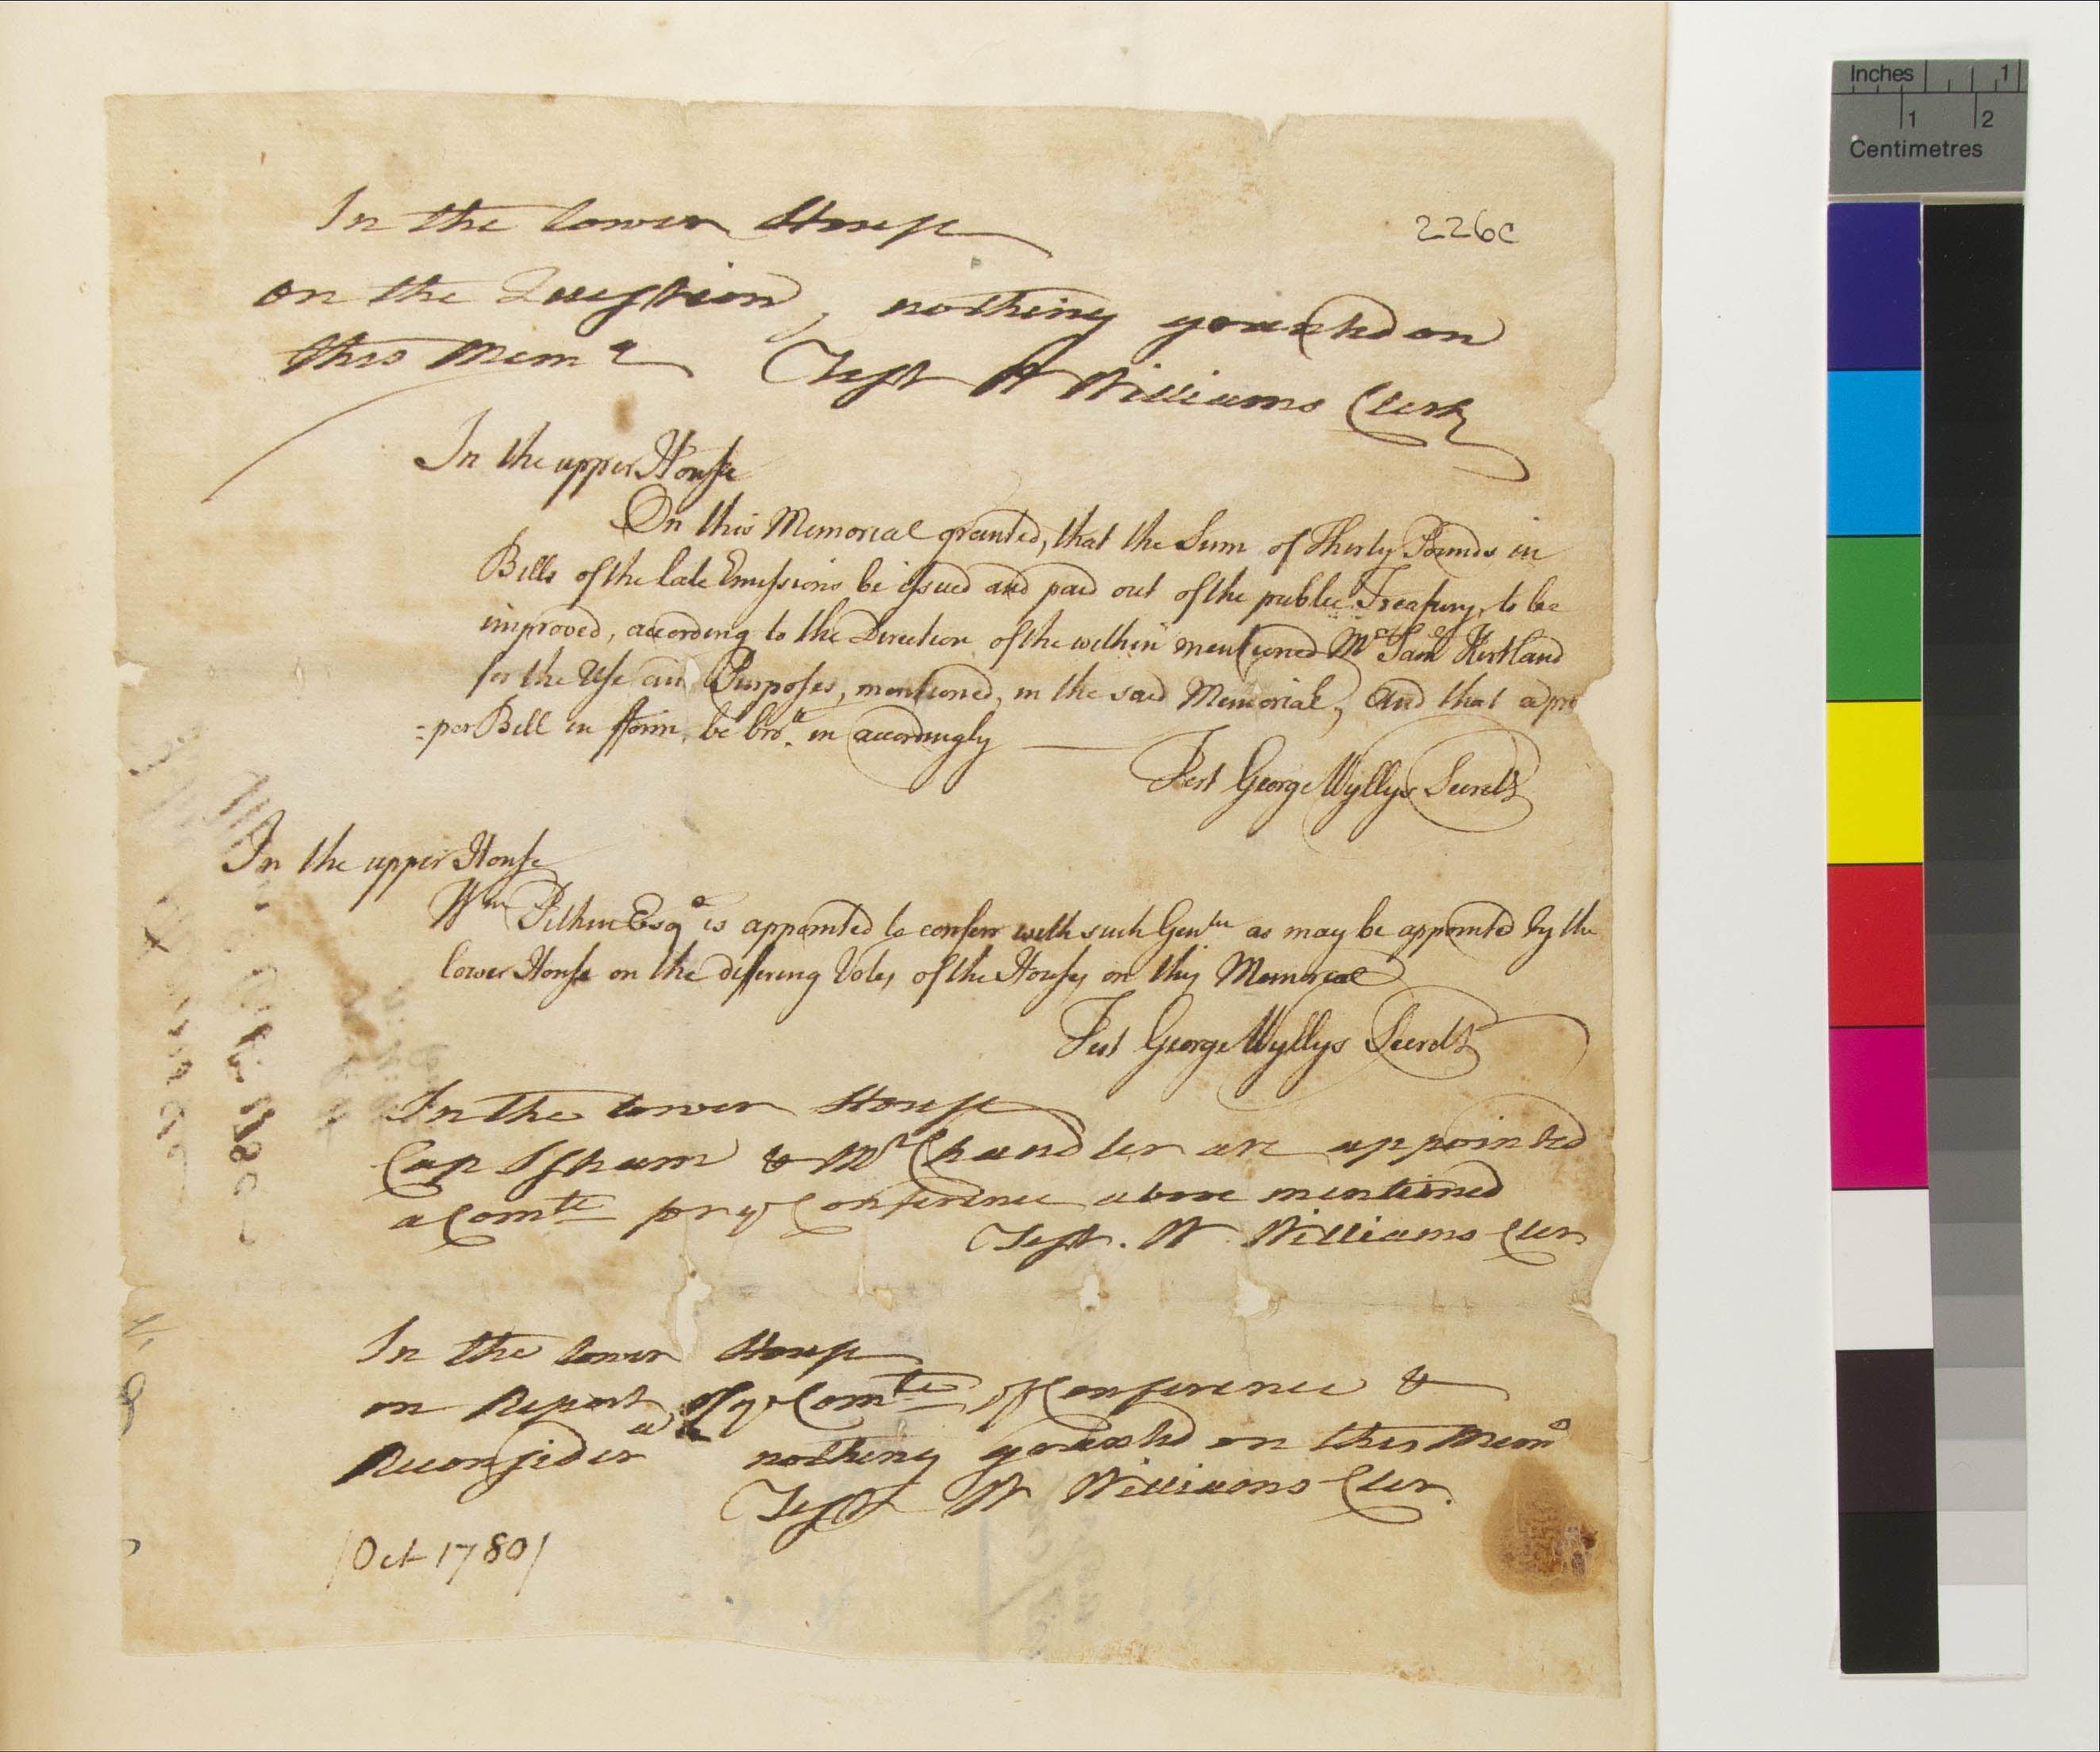 226c
In the lower House
on the Question, nothing granted on
this Mem.l Test W Williams Clerk
In the upper House
On this Memorial granted, that the Sum of Thirty Pounds in
Bills of the late Emissions be issued and paid out of the public Treasury, to be
improved, according to the Direction of the within mentioned Mr Saml Kirtland
for the Use and Purposes, mentioned, in the said Memorial, and that a pro
=per Bill in fform, be bro.t in accordingly
Test George Wyllys Secret.y
In the upper House
Wm Pitkin Esqr is appointed to conferr with such Gentn as may be appointed by the
lower House on the differing Votes of the Houses on this Memorial
Test George Wyllys Secret.y
In the lower House
Cap Isham & Mr Chandler are appointed
a Comte for ye Conference above mentioned
Test. W Williams Cler
In the lower House
on Report of ye Comte of Conference &
Reconsiderd nothing granted on this Meml
Test W Williams Cler.
/Oct 1780/
Inches 1
1 2
Centimetres